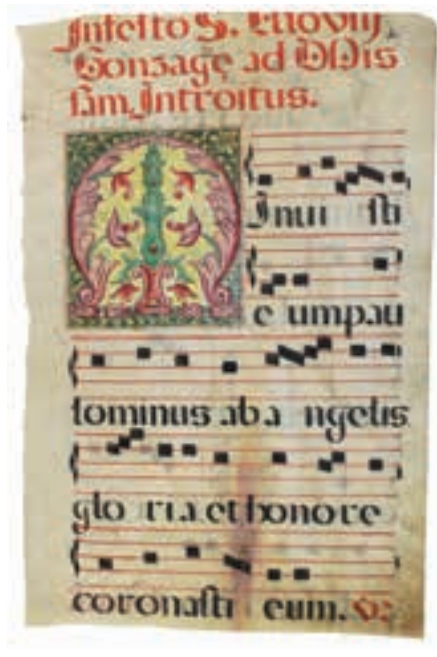 In festo S. Aloviij
Gonzagę ad Mis
sam, Introitus.
MInui sti
e umpau
lominus ab a ngelis
glo ria et honore
coronasti eum. V: